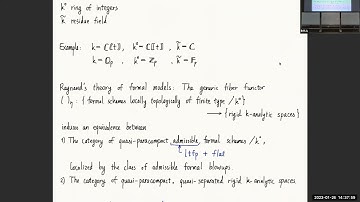 k° ring of integers
k̃ residue field
Example: k = ℂ((t)), k° = ℂ[[t]], k̃ = ℂ
k = ℚₚ, k° = ℤₚ, k̃ = 𝔽ₚ
Raynaud's theory of formal models: The generic fiber functor
( )η : {formal schemes locally topologically of finite type /k°}
→ {rigid k-analytic spaces}
induces an equivalence between
1) The category of quasi-paracompact admissible formal schemes /k°,
ltfp + flat
localized by the class of admissible formal blowups.
2) The category of quasi-paracompact, quasi-separated rigid k-analytic spaces
2023-01-26 14:37:55